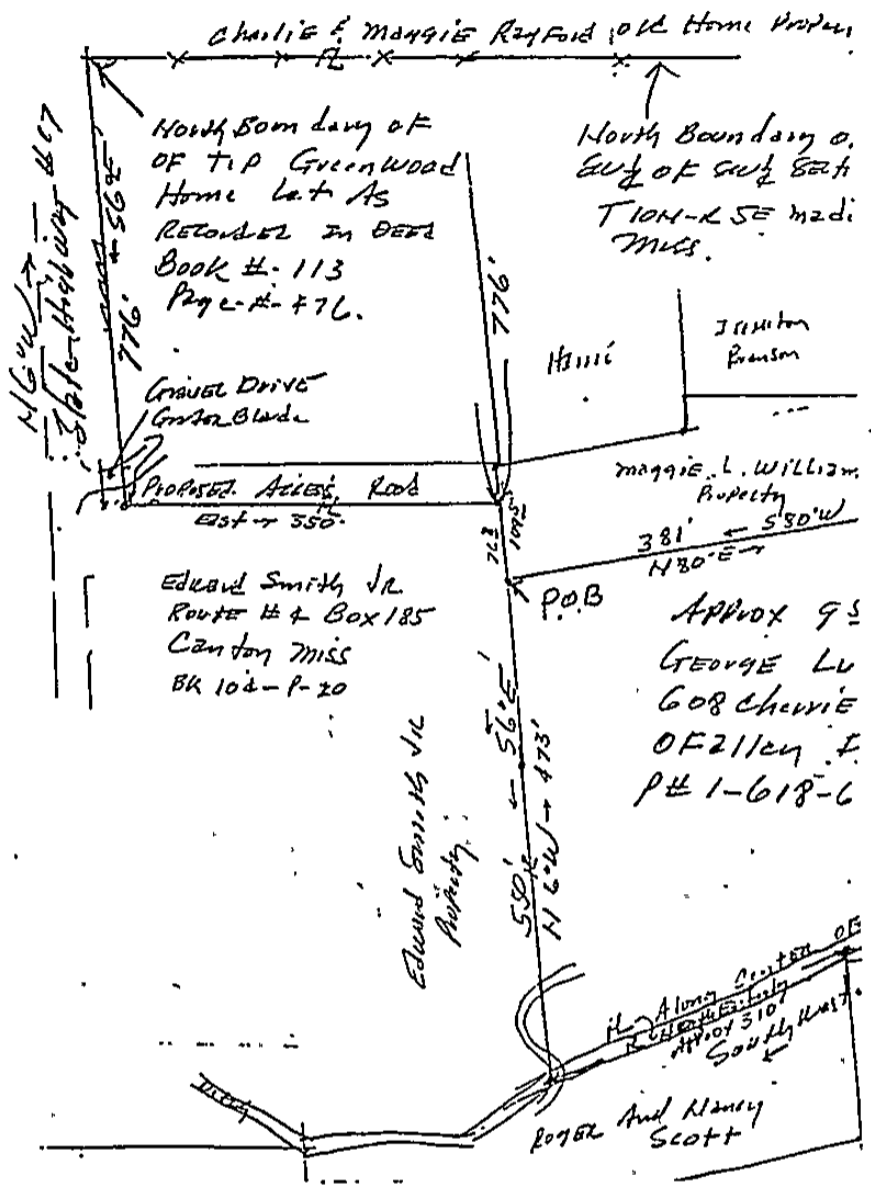 Charlie & Maggie Rayford old Home Proper
PL
North Boundary of
OF TIP Greenwood
Home Lot As
Recorded In Deed
Book #-113
Page-#-476.
North Boundary o
SW¼ OF SW¼ Sect
T10N-R5E madi
Miss.
N6°W →
State Highway #17
← S6°E
776'
776'
Gravel Drive
Grator Blade
Proposed Access Road
East → 350'
Maggie L. William
Property
381' ← S80°W
N80°E →
P.O.B
Edward Smith JR
Route # 4 Box 185
Canton Miss
BK 104-P-20
Approx 9
George Lu
608 Cherrie
OFallen
P# 1-618-6
← S6°E
550'
N6°W → 473'
Edward Smith JR
Property
PL Along Center OF
Approx 310'
South West
←
Ditch
Roger And Nancy
Scott